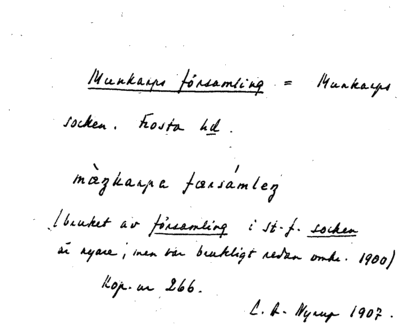 Munkarps församling = Munkarps
socken. Frosta hd.
mùŋkarpa farsámleŋ
(bruket av församling i st. f. socken
är nyare; men var brukligt redan omkr. 1900)
Kop. ur 266.
C. A. Nyrup 1907.